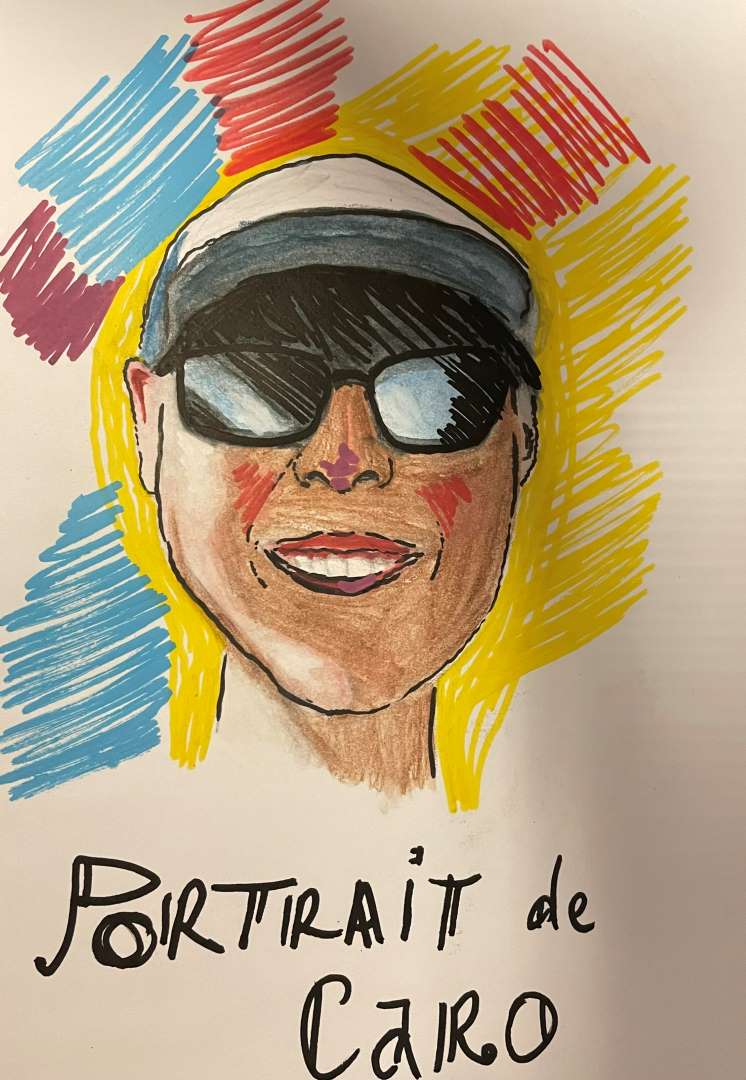 PORTRAiT de
CaRO